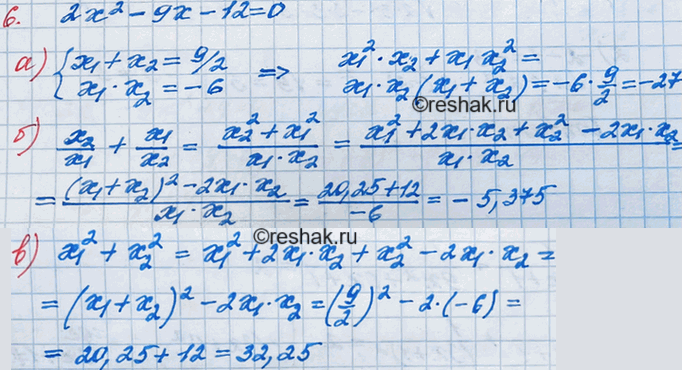 6. 2x² - 9x - 12 = 0
а) { x₁ + x₂ = 9/2 => x₁² · x₂ + x₁ x₂² =
x₁ · x₂ = -6 x₁ · x₂ (x₁ + x₂) = -6 · 9/2 = -27
©reshak.ru
б) x₂/x₁ + x₁/x₂ = (x₂² + x₁²)/(x₁ · x₂) = (x₁² + 2x₁ · x₂ + x₂² - 2x₁ · x₂)/(x₁ · x₂) =
= ((x₁ + x₂)² - 2x₁ · x₂)/(x₁ · x₂) = (20,25 + 12)/(-6) = -5,375
©reshak.ru
в) x₁² + x₂² = x₁² + 2x₁ · x₂ + x₂² - 2x₁ · x₂ =
= (x₁ + x₂)² - 2x₁ · x₂ = (9/2)² - 2 · (-6) =
= 20,25 + 12 = 32,25